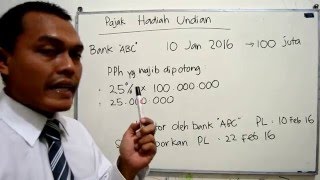 Pajak Hadiah Undian
Bank "ABC" 10 Jan 2016 → 100 juta
PPh yg wajib dipotong
= 25% x 100 000 000
= 25.000.000
tor oleh bank "ABC" PL : 10 feb 16
porkan PL : 22 feb 16